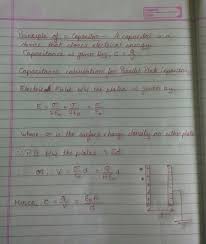 Principle of a Capacitor - A capacitor is a
device that stores electrical energy.
Capacitance is given by, C = q/V
Capacitance calculations for Parallel Plate Capacitor
Electric field b/w the plates is given by
E = σ/2ε₀ + σ/2ε₀ = σ/ε₀
where σ is the surface charge density on either plate
P.D. b/w the plates = Ed
or, V = σ/ε₀ d =
Hence, C = q/V = ε₀A/d